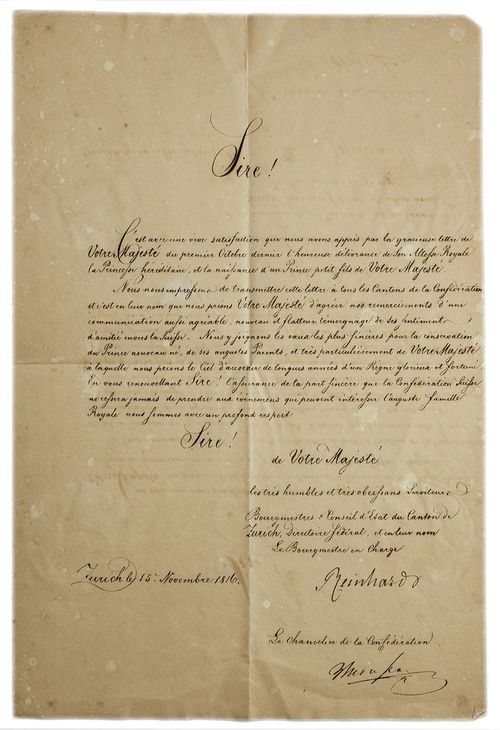 Sire !
C'est avec une vive satisfaction que nous avons appris par la gracieuse lettre de
Votre Majesté du premier Octobre dernier l'heureuse délivrance de Son Altesse Royale
la Princesse héréditaire, et la naissance d'un Prince petit fils de Votre Majesté.
Nous nous empressons de transmettre cette lettre à tous les Cantons de la Confédération
et c'est en leur nom que nous prions Votre Majesté d'agréer nos remerciemens d'une
communication aussi agréable, nouveau et flatteur témoignage de ses sentimens
d'amitié envers la Suisse. Nous y joignons les vœux les plus sincères pour la conservation
du Prince nouveau né, de ses augustes Parents, et très particulièrement de Votre Majesté
à laquelle nous prions le Ciel d'accorder de longues années d'un Regne glorieux et fortuné.
En vous renouvellant Sire ! l'assurance de la part sincère que la Confédération Suisse
ne cessera jamais de prendre aux événemens qui peuvent intéresser l'auguste famille
Royale nous sommes avec un profond respect
Sire !
de Votre Majesté
les très humbles et très obéissans Serviteurs
Bourgmestres & Conseil d'Etat du Canton de
Zurich, Directoire fédéral, et en leur nom
Le Bourgmestre en Charge
Zurich le 15. Novembre 1816.
Reinhard
Le Chancelier de la Confédération.
Mousson